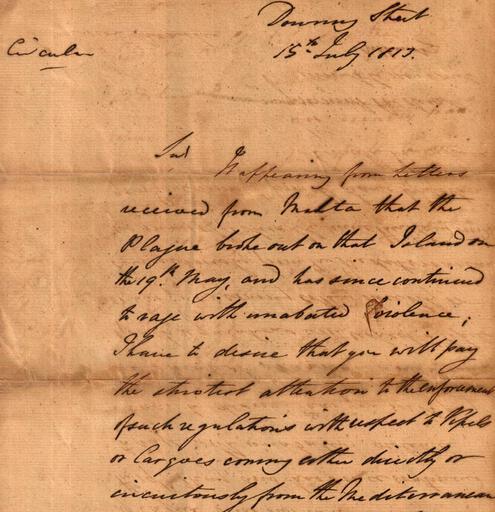 Downing Street
Circular
15th July 1813.
Sir
It appearing from Letters
received from Malta that the
Plague broke out on that Island on
the 19th May, and has since continued
to rage with unabated Violence;
I have to desire that you will pay
the strictest attention to the enforcement
of such regulations with respect to Vessels
or Cargoes coming either directly or
circuitously from the Mediterranean